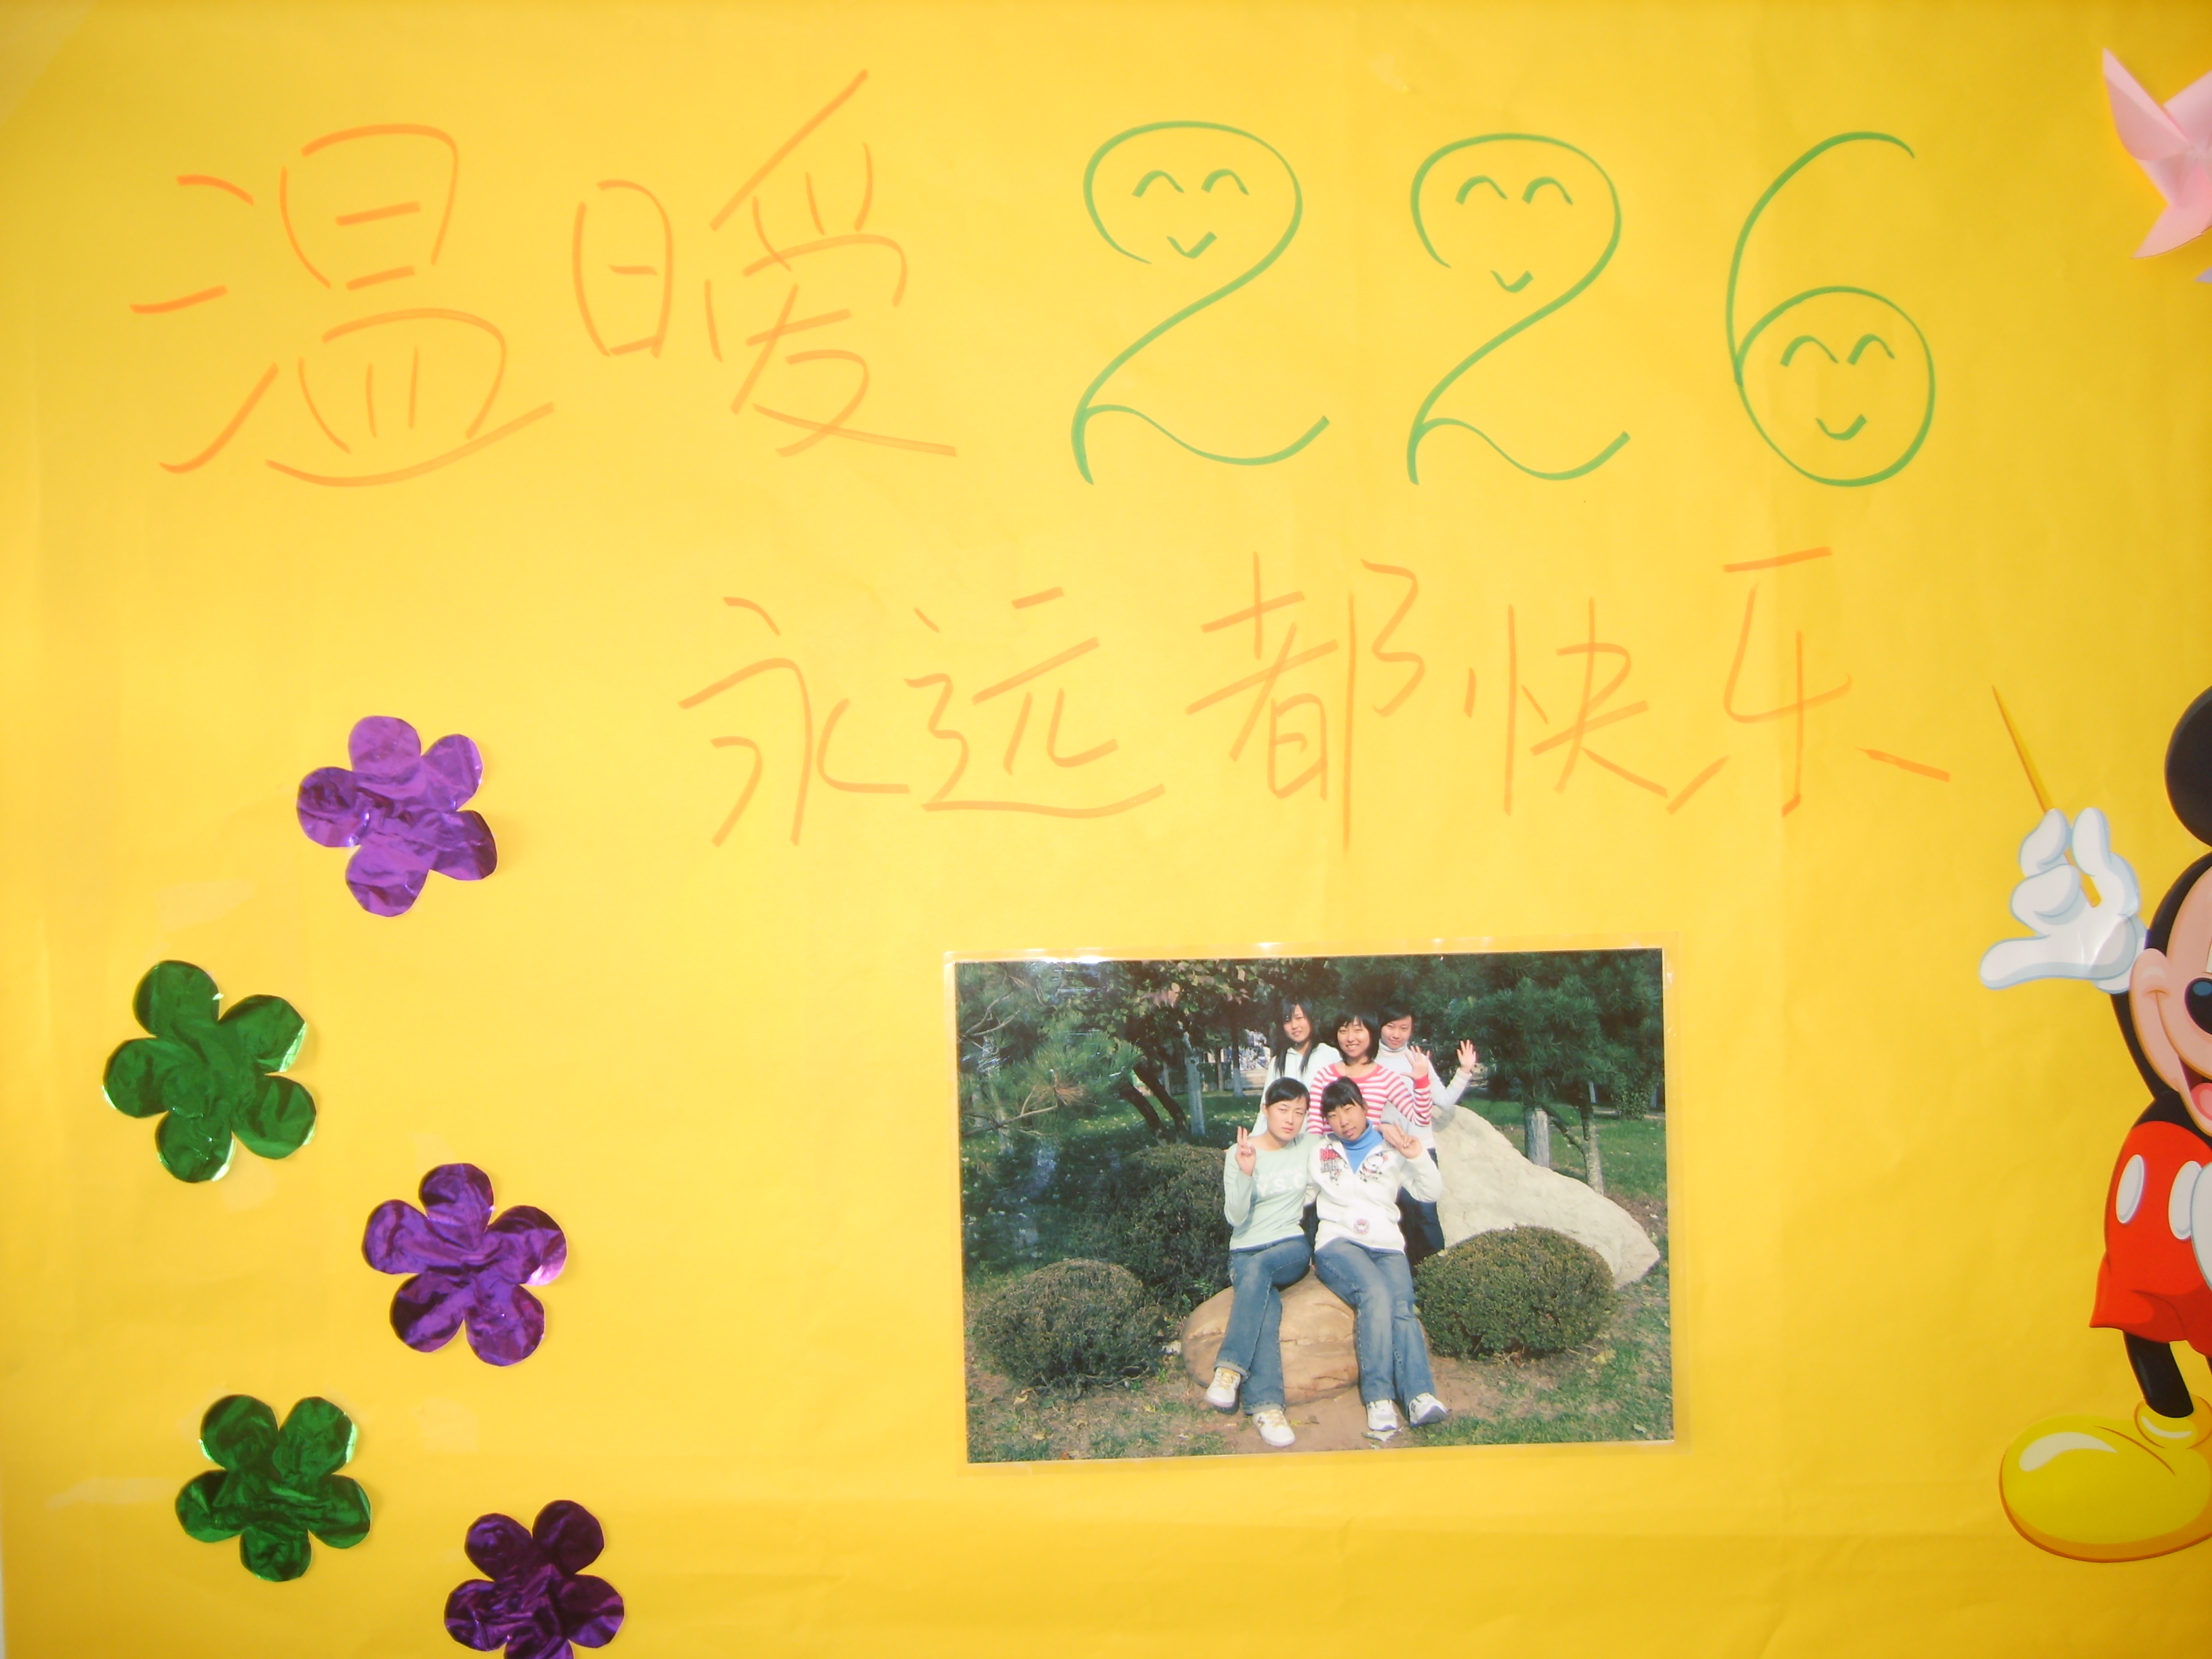 温暖226
永远都快乐